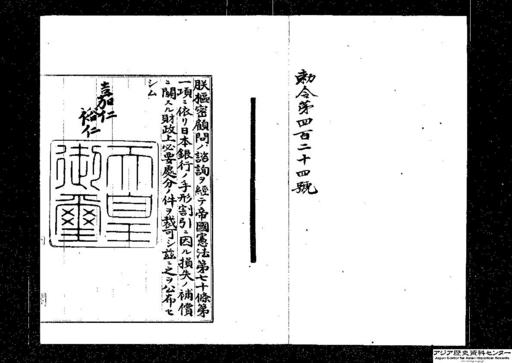 勅令第四百二十四號
朕樞密顧問ノ諮詢ヲ經テ帝國憲法第七十條第
一項ニ依リ日本銀行ノ手形割引ニ因ル損失ノ補償
ニ關スル財政上必要處分ノ件ヲ裁可シ茲ニ之ヲ公布セ
シム
嘉仁
裕仁
天皇
御璽
アジア歴史資料センター
Japan Center for Asian Historical Records